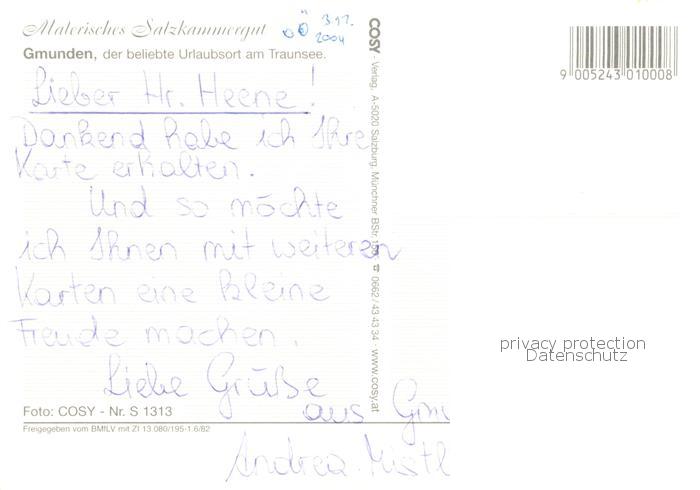 Malerisches Salzkammergut
Gmunden, der beliebte Urlaubsort am Traunsee.
OÖ 3.11.
2004
Lieber Hr. Heene!
Dankend habe ich Ihre
Karte erhalten.
Und so möchte
ich Ihnen mit weiteren
Karten eine kleine
Freude machen.
Liebe Grüße
aus Gm
Andrea Mistl
Foto: COSY - Nr. S 1313
Freigegeben vom BMfLV mit Zl 13.080/195-1.6/82
COSY - Verlag, A-5020 Salzburg, Münchner BStr. ☎ 0662/43 43 34 · www.cosy.at
9 005243 010008
privacy protection
Datenschutz